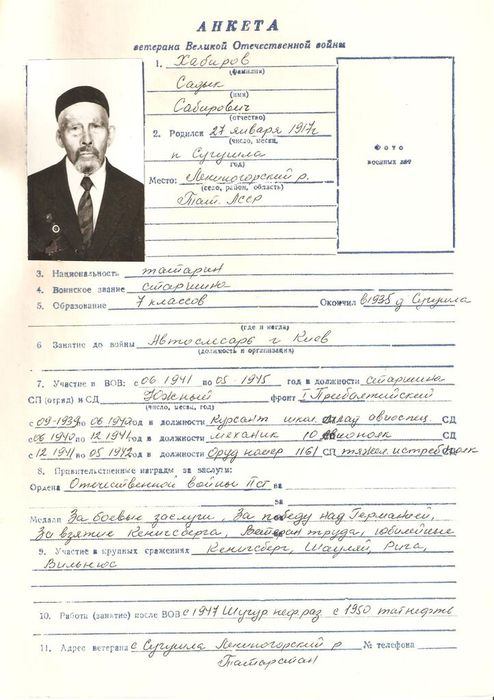 АНКЕТА
ветерана Великой Отечественной войны
1. Хабиров
(фамилия)
Садык
(имя)
Сабирович
(отчество)
2. Родился 27 января 1917г
(число, месяц,
п Сугушла
год)
Место: Лениногорский р.
(село, район, область)
Тат. Асср
Фото
военных лет
3. Национальность татарин
4. Воинское звание старшина
5. Образование 7 классов Окончил в 1935 д Сугушла
(где и когда)
6 Занятие до войны Автослесарь г Киев
(должность и организация)
7. Участие в ВОВ: с 06 1941 по 05-1945 год в должности старшина
СП (отряд) и СД Южный фронт I Прибалтийский
(число, месяц, год)
с 09-1939 по 06 1940 год в должности Курсант школ. млад авиоспец. СД
с 06 1940 по 12 1941 год в должности механик 10 авиополк СД
с 12 1941 по 05 1942 год в должности Оруд номер 1161 СП тяжел. истреб полк
8. Правительственные награды за заслуги:
Ордена Отечественной войны IIст за
за
Медали За боевые заслуги, За победу над Германией,
За взятие Кенигсберга, Ветеран труда, юбилейные
9. Участие в крупных сражениях Кенигсберг, Шауляй, Рига,
Вильнюс
10. Работа (занятие) после ВОВ с 1947 Шугур нефраз с 1950 татнефть
11. Адрес ветерана с Сугушла Лениногорский р № телефона
Татарстан